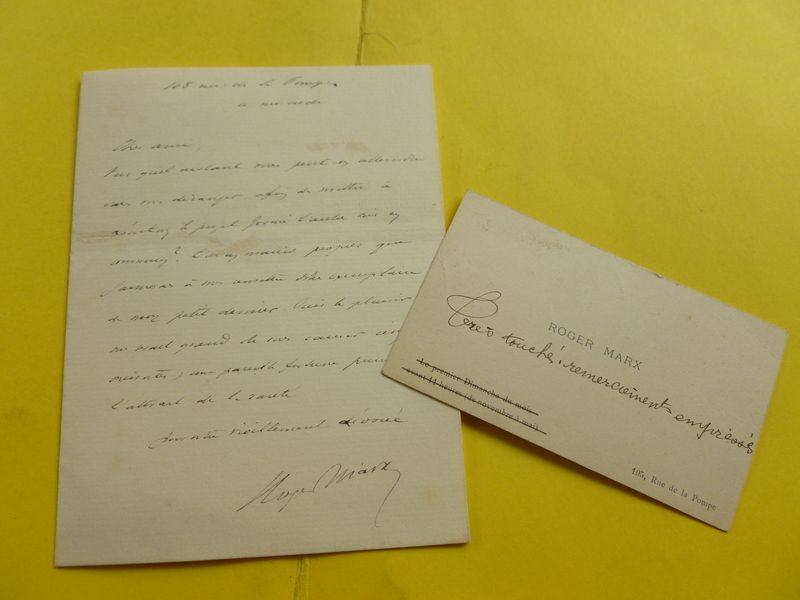 105 rue de la Pompe
ce mercredi
Cher ami,
quel instant vous peut on atteindre
sans vous déranger, afin de mettre à
exécution le projet formé l'autre soir en
? mains propres que
à vous votre exemplaire
de mon petit dernier. Puis le plaisir
me serait grand de vous causer
; une pareille fortune
l'attrait de la rareté
votre vieillement dévoué
Roger Marx
ROGER MARX
Très touché, remerciements empressés
Le premier Dimanche du mois
avant 11 heures (de novembre à mai)
105, Rue de la Pompe